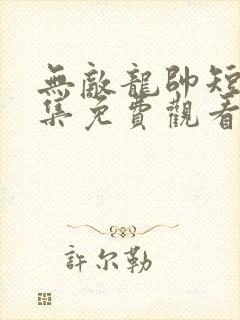 無敵龍帥短
集免費觀看
許尔勒